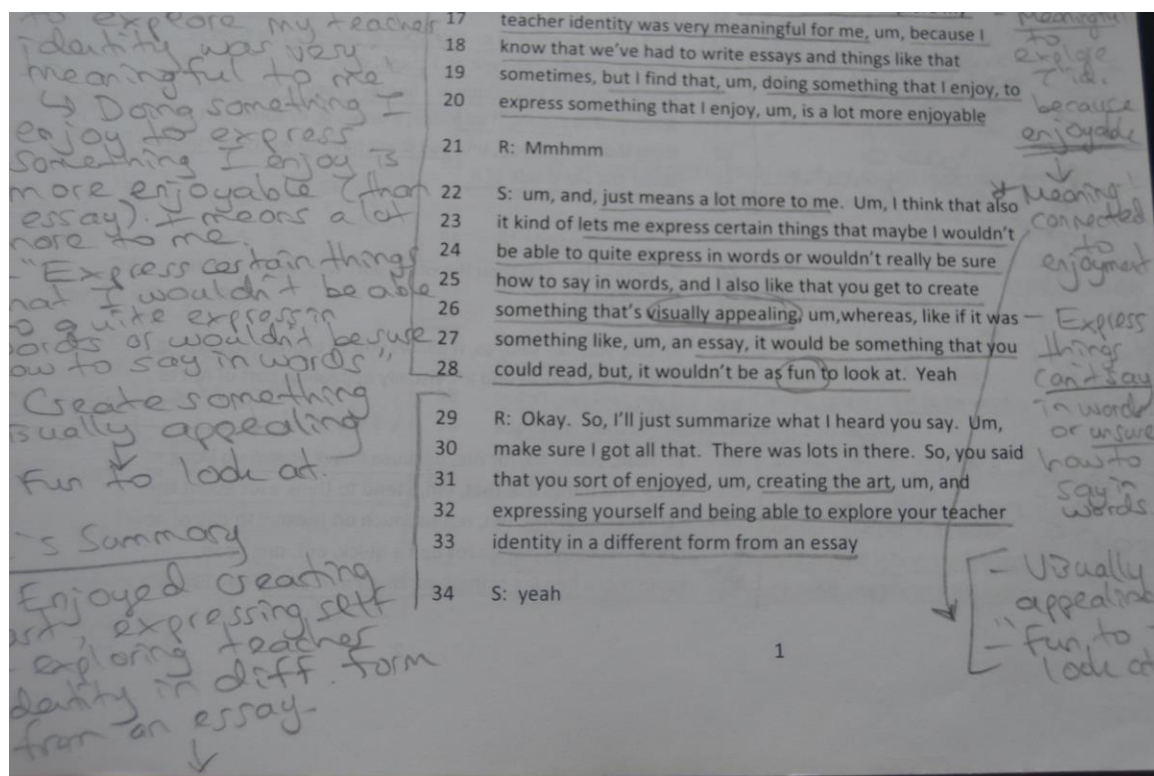 to explore my teacher
identity was very
meaningful to me"
↳ Doing something I
enjoy to express
something I enjoy is
more enjoyable (than
essay). I means a lot
more to me.
-"Express certain things
I wouldn't be able
quite express in
words or wouldn't be sure
how to say in words"
Create something
visually appealing
↓
Fun to look at.
's Summary
Enjoyed creating
art, expressing self
exploring teacher
identity in diff. form
from an essay-
↓
17 teacher identity was very meaningful for me, um, because I
18 know that we've had to write essays and things like that
19 sometimes, but I find that, um, doing something that I enjoy, to
20 express something that I enjoy, um, is a lot more enjoyable
21 R: Mmhmm
22 S: um, and, just means a lot more to me. Um, I think that also
23 it kind of lets me express certain things that maybe I wouldn't
24 be able to quite express in words or wouldn't really be sure
25 how to say in words, and I also like that you get to create
26 something that's visually appealing, um,whereas, like if it was
27 something like, um, an essay, it would be something that you
28 could read, but, it wouldn't be as fun to look at. Yeah
29 R: Okay. So, I'll just summarize what I heard you say. Um,
30 make sure I got all that. There was lots in there. So, you said
31 that you sort of enjoyed, um, creating the art, um, and
32 expressing yourself and being able to explore your teacher
33 identity in a different form from an essay
34 S: yeah
1
Meaningful
to
explore
T id.
because
enjoyable
↓
Meaning
connected
to
enjoyment
— Express
things
can't say
in words
or unsure
how to
say in
words.
- Visually
appealing
- "Fun to
look at